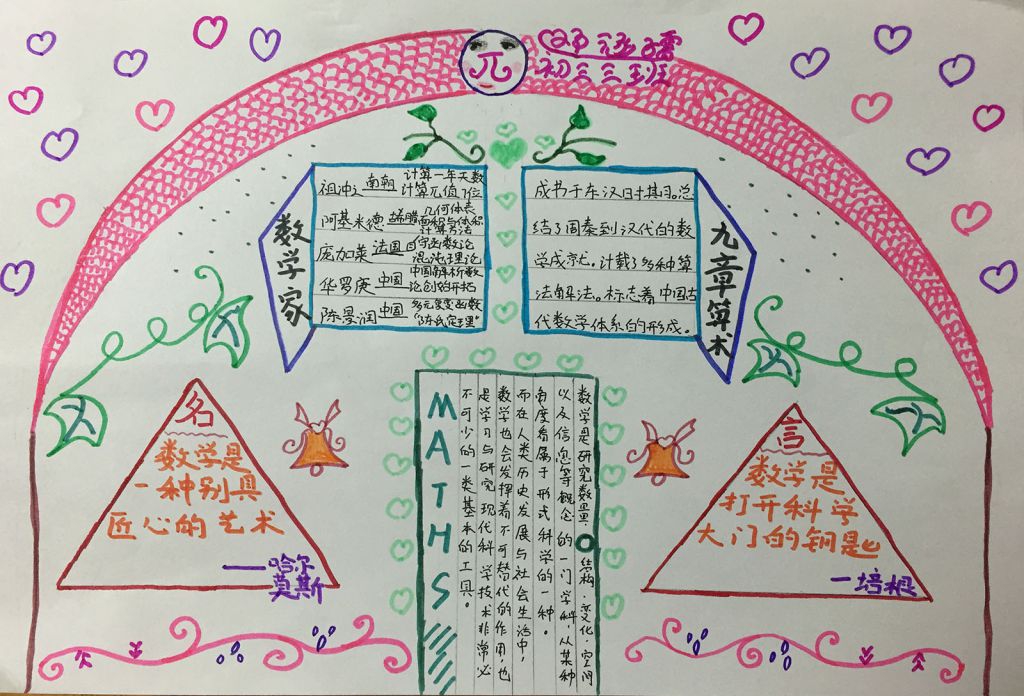 兀
涵孺
初三三班
数学家
祖冲之 南朝 计算一年天数
计算兀值7位
阿基米德 希腊 几何体表
面积与体积
计算方法
庞加莱 法国 自守函数论
混沌理论
华罗庚 中国 中国解析数
论创始开拓
陈景润 中国 多元复变函数
“陈氏定理”
九章算术
成书于东汉时其习总
结了周秦到汉代的数
学成就。计载了多种算
法解法。标志着中国古
代数学体系的形成。
名
数学是
一种别具
匠心的艺术
——哈尔
莫斯
MATHS
数学是研究数量、结构、变化、空间
以及信息等概念的一门学科,从某种
角度看属于形式科学的一种。
而在人类历史发展与社会生活中,
数学也会发挥着不可替代的作用,也
是学习与研究现代科学技术非常必
不可少的一类基本的工具。
言
数学是
打开科学
大门的钥匙
—培根